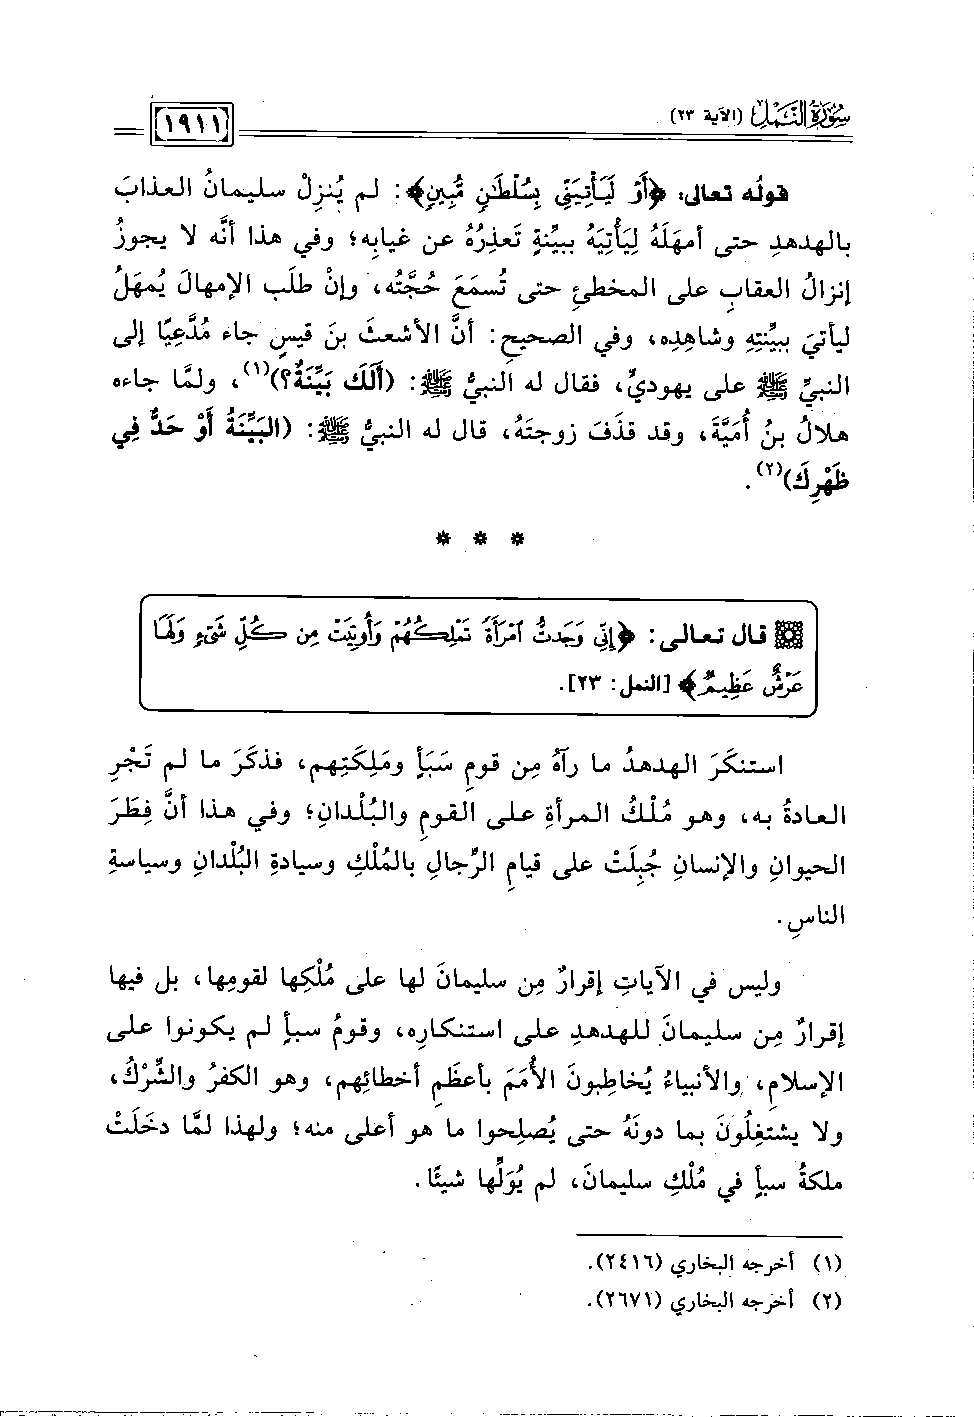 سُورَةُ النَّمْلِ (الآية ٢٣)
١٩١١
قولُه تعالى: ﴿أَوْ لَيَأْتِيَنِّي بِسُلْطَانٍ مُّبِينٍ﴾: لم يُنزِلْ سليمانُ العذابَ
بالهدهدِ حتى أمهَلَهُ لِيَأْتِيَهُ ببيِّنةٍ تَعذِرُهُ عن غيابِه؛ وفي هذا أنَّه لا يجوزُ
إنزالُ العقابِ على المخطئِ حتى تُسمَعَ حُجَّتُه، وإنْ طلَب الإمهالَ يُمهَلُ
ليأتيَ ببيِّنتِهِ وشاهِدِه، وفي الصحيحِ: أنَّ الأشعثَ بنَ قيسٍ جاء مُدَّعِيًا إلى
النبيِّ ﷺ على يهوديٍّ، فقال له النبيُّ ﷺ: (أَلَكَ بَيِّنَةٌ؟)(١)، ولمَّا جاءه
هلالُ بنُ أُمَيَّةَ، وقد قذَفَ زوجتَهُ، قال له النبيُّ ﷺ: (البَيِّنَةُ أَوْ حَدٌّ فِي
ظَهْرِكَ)(٢).
* * *
قال تعالى: ﴿إِنِّي وَجَدتُّ امْرَأَةً تَمْلِكُهُمْ وَأُوتِيَتْ مِن كُلِّ شَيْءٍ وَلَهَا
عَرْشٌ عَظِيمٌ﴾ [النمل: ٢٣].
استنكَرَ الهدهدُ ما رآهُ مِن قومِ سَبَأٍ ومَلِكَتِهم، فذكَرَ ما لم تَجْرِ
العادةُ به، وهو مُلْكُ المرأةِ على القومِ والبُلْدانِ؛ وفي هذا أنَّ فِطَرَ
الحيوانِ والإنسانِ جُبِلَتْ على قيامِ الرِّجالِ بالمُلْكِ وسيادةِ البُلْدانِ وسياسةِ
الناسِ.
وليس في الآياتِ إقرارٌ مِن سليمانَ لها على مُلْكِها لقومِها، بل فيها
إقرارٌ مِن سليمانَ للهدهدِ على استنكارِه، وقومُ سبأٍ لم يكونوا على
الإسلامِ، والأنبياءُ يُخاطِبونَ الأُمَمَ بأعظَمِ أخطائِهم، وهو الكفرُ والشِّرْكُ،
ولا يشتغِلُونَ بما دونَهُ حتى يُصلِحوا ما هو أعلى منه؛ ولهذا لمَّا دخَلَتْ
ملكةُ سبأٍ في مُلْكِ سليمانَ، لم يُوَلِّها شيئًا.
(١) أخرجه البخاري (٢٤١٦).
(٢) أخرجه البخاري (٢٦٧١).